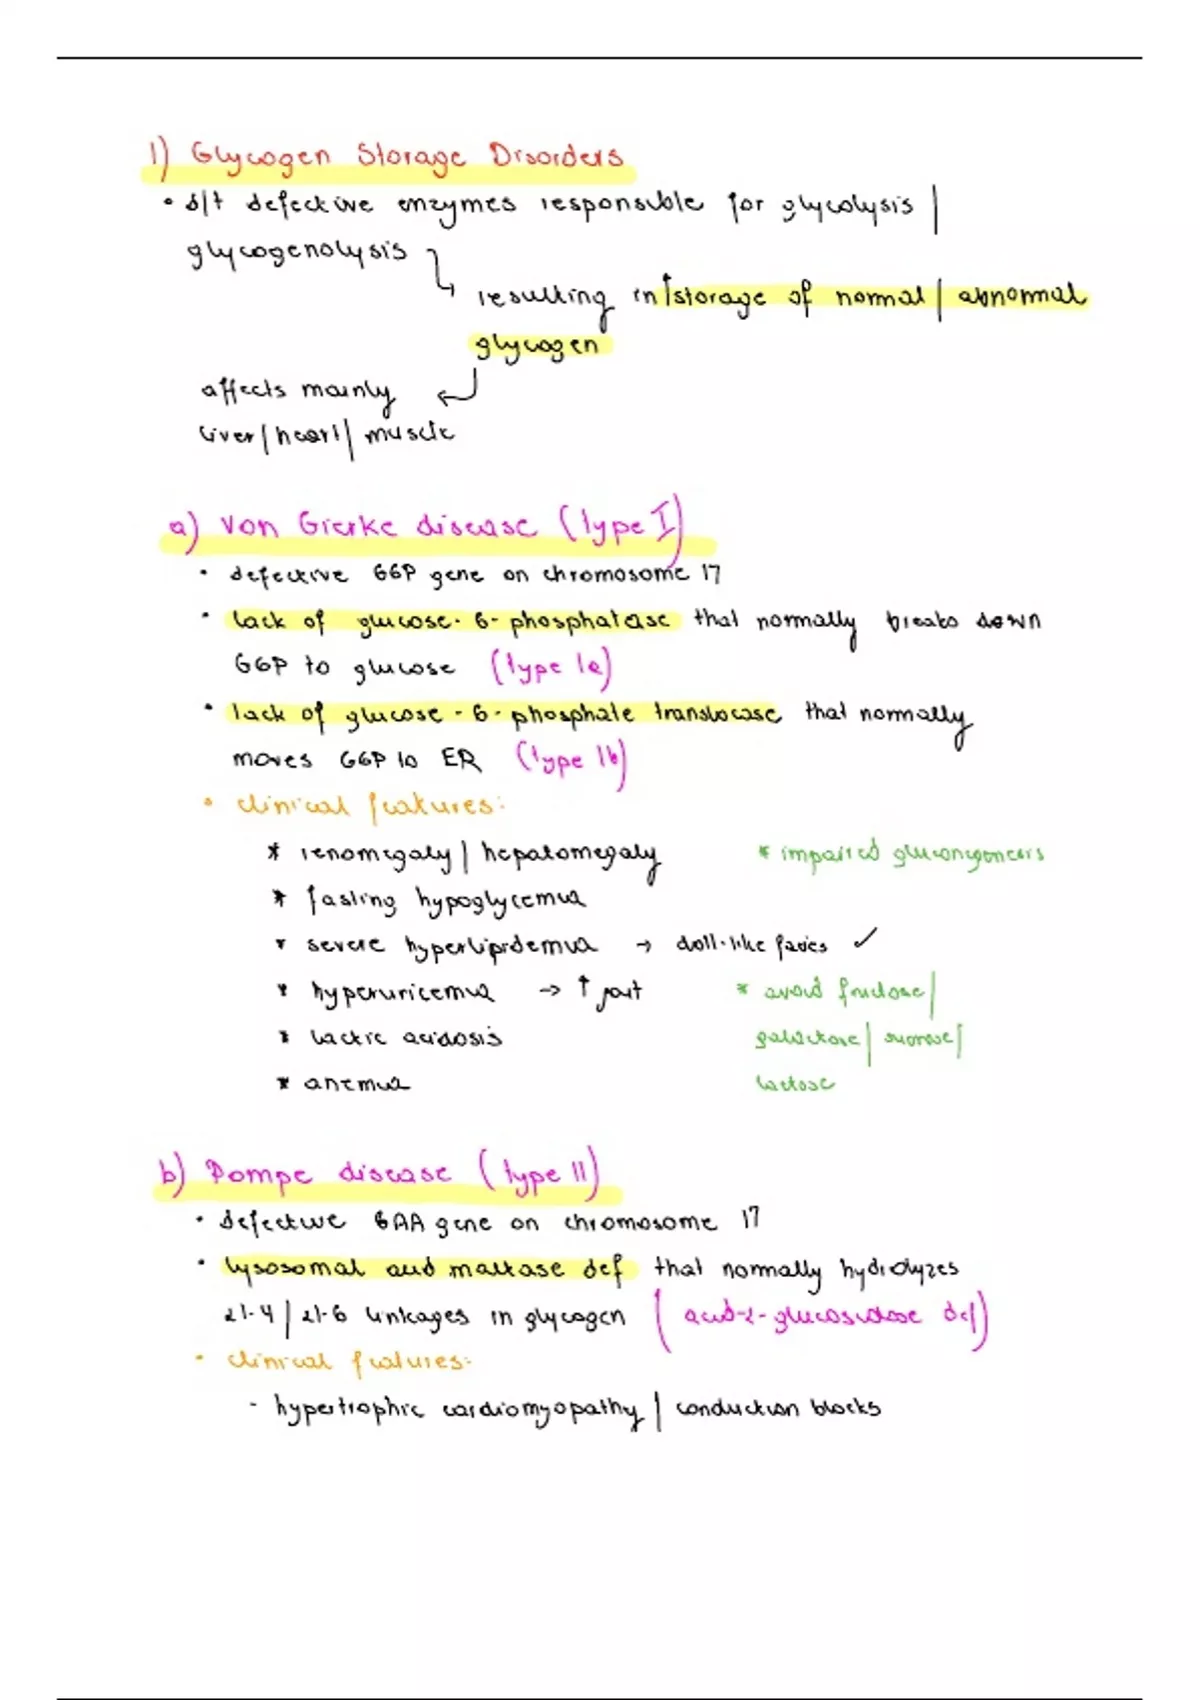 1) Glycogen Storage Disorders
• d/t defective enzymes responsible for glycolysis |
glycogenolysis
↳ resulting in ↑storage of normal | abnormal
glycogen
affects mainly ↲
liver | heart | muscle
a) Von Gierke disease (type I)
• defective G6P gene on chromosome 17
• lack of glucose-6-phosphatase that normally breaks down
G6P to glucose (type 1a)
• lack of glucose-6-phosphate translocase that normally
moves G6P to ER (type 1b)
• clinical features:
* renomegaly | hepatomegaly * impaired gluconeogenesis
* fasting hypoglycemia
* severe hyperlipidemia → doll-like facies ✓
* hyperuricemia → ↑ gout * avoid fructose |
* lactic acidosis galactose | sucrose |
* anemia lactose
b) Pompe disease (type II)
• defective GAA gene on chromosome 17
• lysosomal acid maltase def that normally hydrolyzes
α1-4 | α1-6 linkages in glycogen (acid-α-glucosidase def)
• clinical features:
- hypertrophic cardiomyopathy | conduction blocks